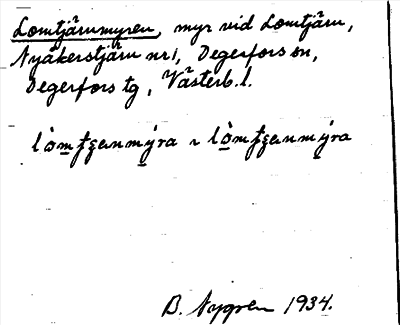 Lomtjärnmyren, myr vid Lomtjärn,
Nyåkerstjärn nr 1, Degerfors sn,
Degerfors tg, Västerb. l.
B. Nygren 1934.